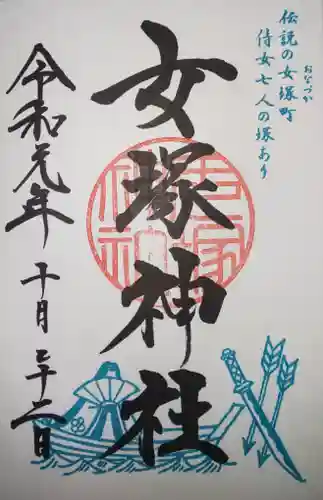 伝説の女塚町
おなづか
侍女七人の塚あり
女塚神社
令和元年十月二十二日